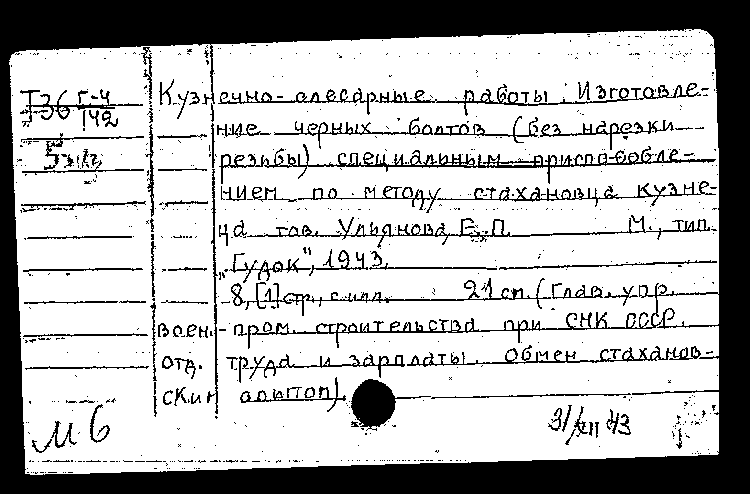 Т36 Г-4 Кузнечно-слесарные работы. Изготовле-
142
ние черных болтов (без нарезки
резьбы) специальным приспособле-
нием по методу стахановца кузне-
ца тов. Ульянова, Е.П. М., тип.
„Гудок“, 1943.
8, [1] стр., с илл. 21 см. (Глав. упр.
воен.-пром. строительства при СНК СССР.
отд. труда и зарплаты. Обмен стаханов-
ским опытом).
М6 31/XII 43